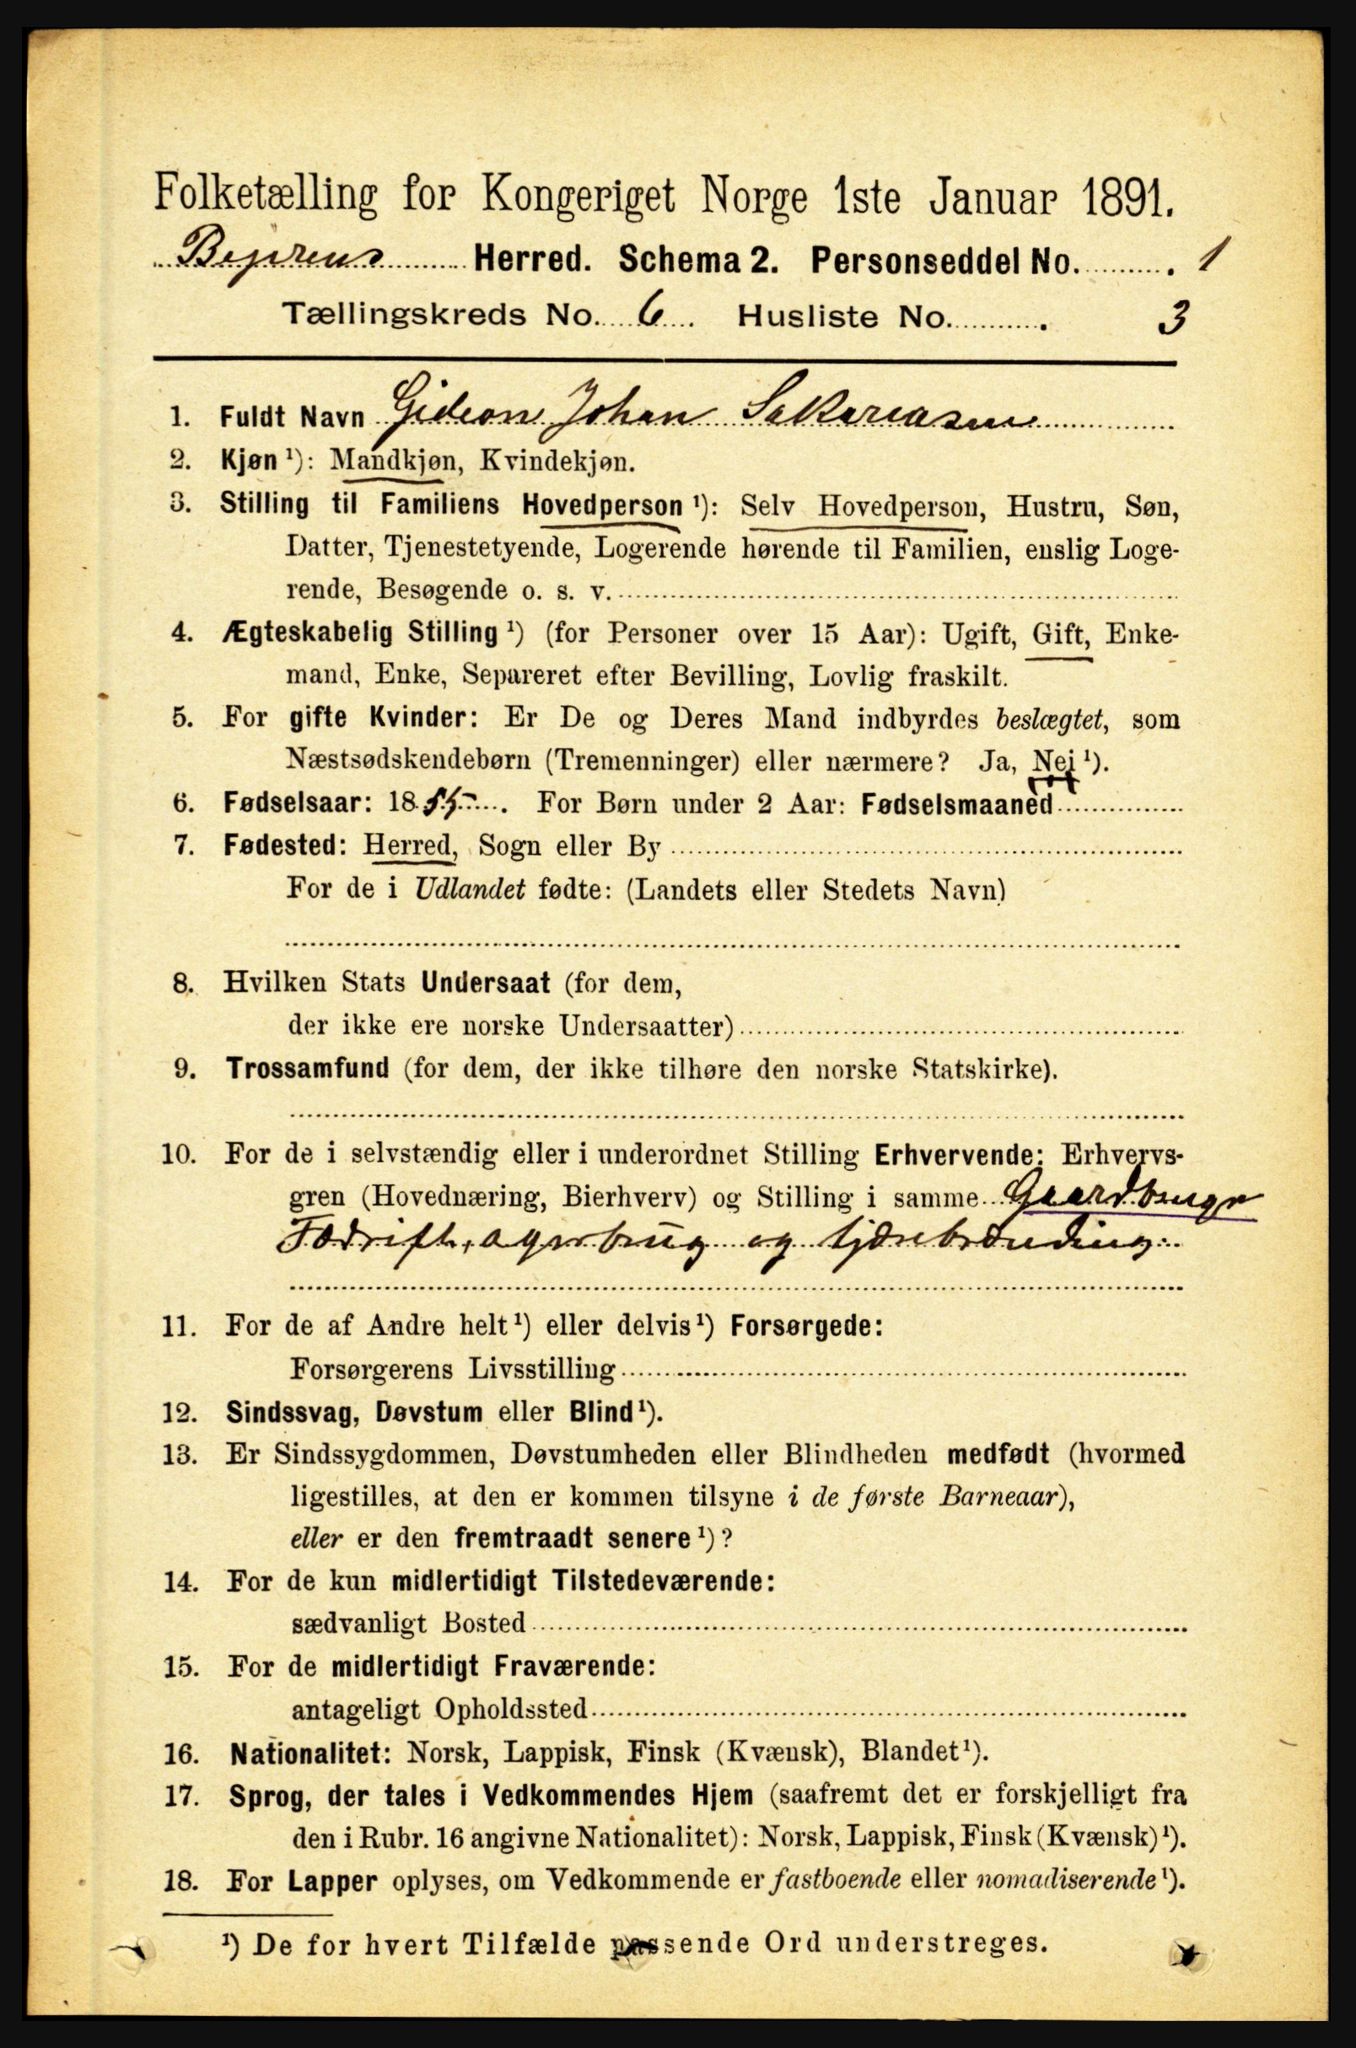 Folketælling for Kongeriget Norge 1ste Januar 1891.
Bejarens Herred. Schema 2. Personseddel No. 1
Tællingskreds No. 6 Husliste No. 3
1. Fuldt Navn Gideon Johan Sakariasen
2. Kjøn ¹): Mandkjøn, Kvindekjøn.
3. Stilling til Familiens Hovedperson ¹): Selv Hovedperson, Hustru, Søn,
Datter, Tjenestetyende, Logerende hørende til Familien, enslig Loge-
rende, Besøgende o. s. v.
4. Ægteskabelig Stilling ¹) (for Personer over 15 Aar): Ugift, Gift, Enke-
mand, Enke, Separeret efter Bevilling, Lovlig fraskilt.
5. For gifte Kvinder: Er De og Deres Mand indbyrdes beslægtet, som
Næstsødskendebørn (Tremenninger) eller nærmere? Ja, Nej ¹).
6. Fødselsaar: 1855. For Børn under 2 Aar: Fødselsmaaned
7. Fødested: Herred, Sogn eller By
For de i Udlandet fødte: (Landets eller Stedets Navn)
8. Hvilken Stats Undersaat (for dem,
der ikke ere norske Undersaatter)
9. Trossamfund (for dem, der ikke tilhøre den norske Statskirke).
10. For de i selvstændig eller i underordnet Stilling Erhvervende: Erhvervs-
gren (Hovednæring, Bierhverv) og Stilling i samme Gaardbruger
Fædrift, agerbrug og tjærebrænding.
11. For de af Andre helt ¹) eller delvis ¹) Forsørgede:
Forsørgerens Livsstilling
12. Sindssvag, Døvstum eller Blind ¹).
13. Er Sindssygdommen, Døvstumheden eller Blindheden medfødt (hvormed
ligestilles, at den er kommen tilsyne i de første Barneaar),
eller er den fremtraadt senere ¹)?
14. For de kun midlertidigt Tilstedeværende:
sædvanligt Bosted
15. For de midlertidigt Fraværende:
antageligt Opholdssted
16. Nationalitet: Norsk, Lappisk, Finsk (Kvænsk), Blandet ¹).
17. Sprog, der tales i Vedkommendes Hjem (saafremt det er forskjelligt fra
den i Rubr. 16 angivne Nationalitet): Norsk, Lappisk, Finsk (Kvænsk) ¹).
18. For Lapper oplyses, om Vedkommende er fastboende eller nomadiserende ¹).
¹) De for hvert Tilfælde passende Ord understreges.